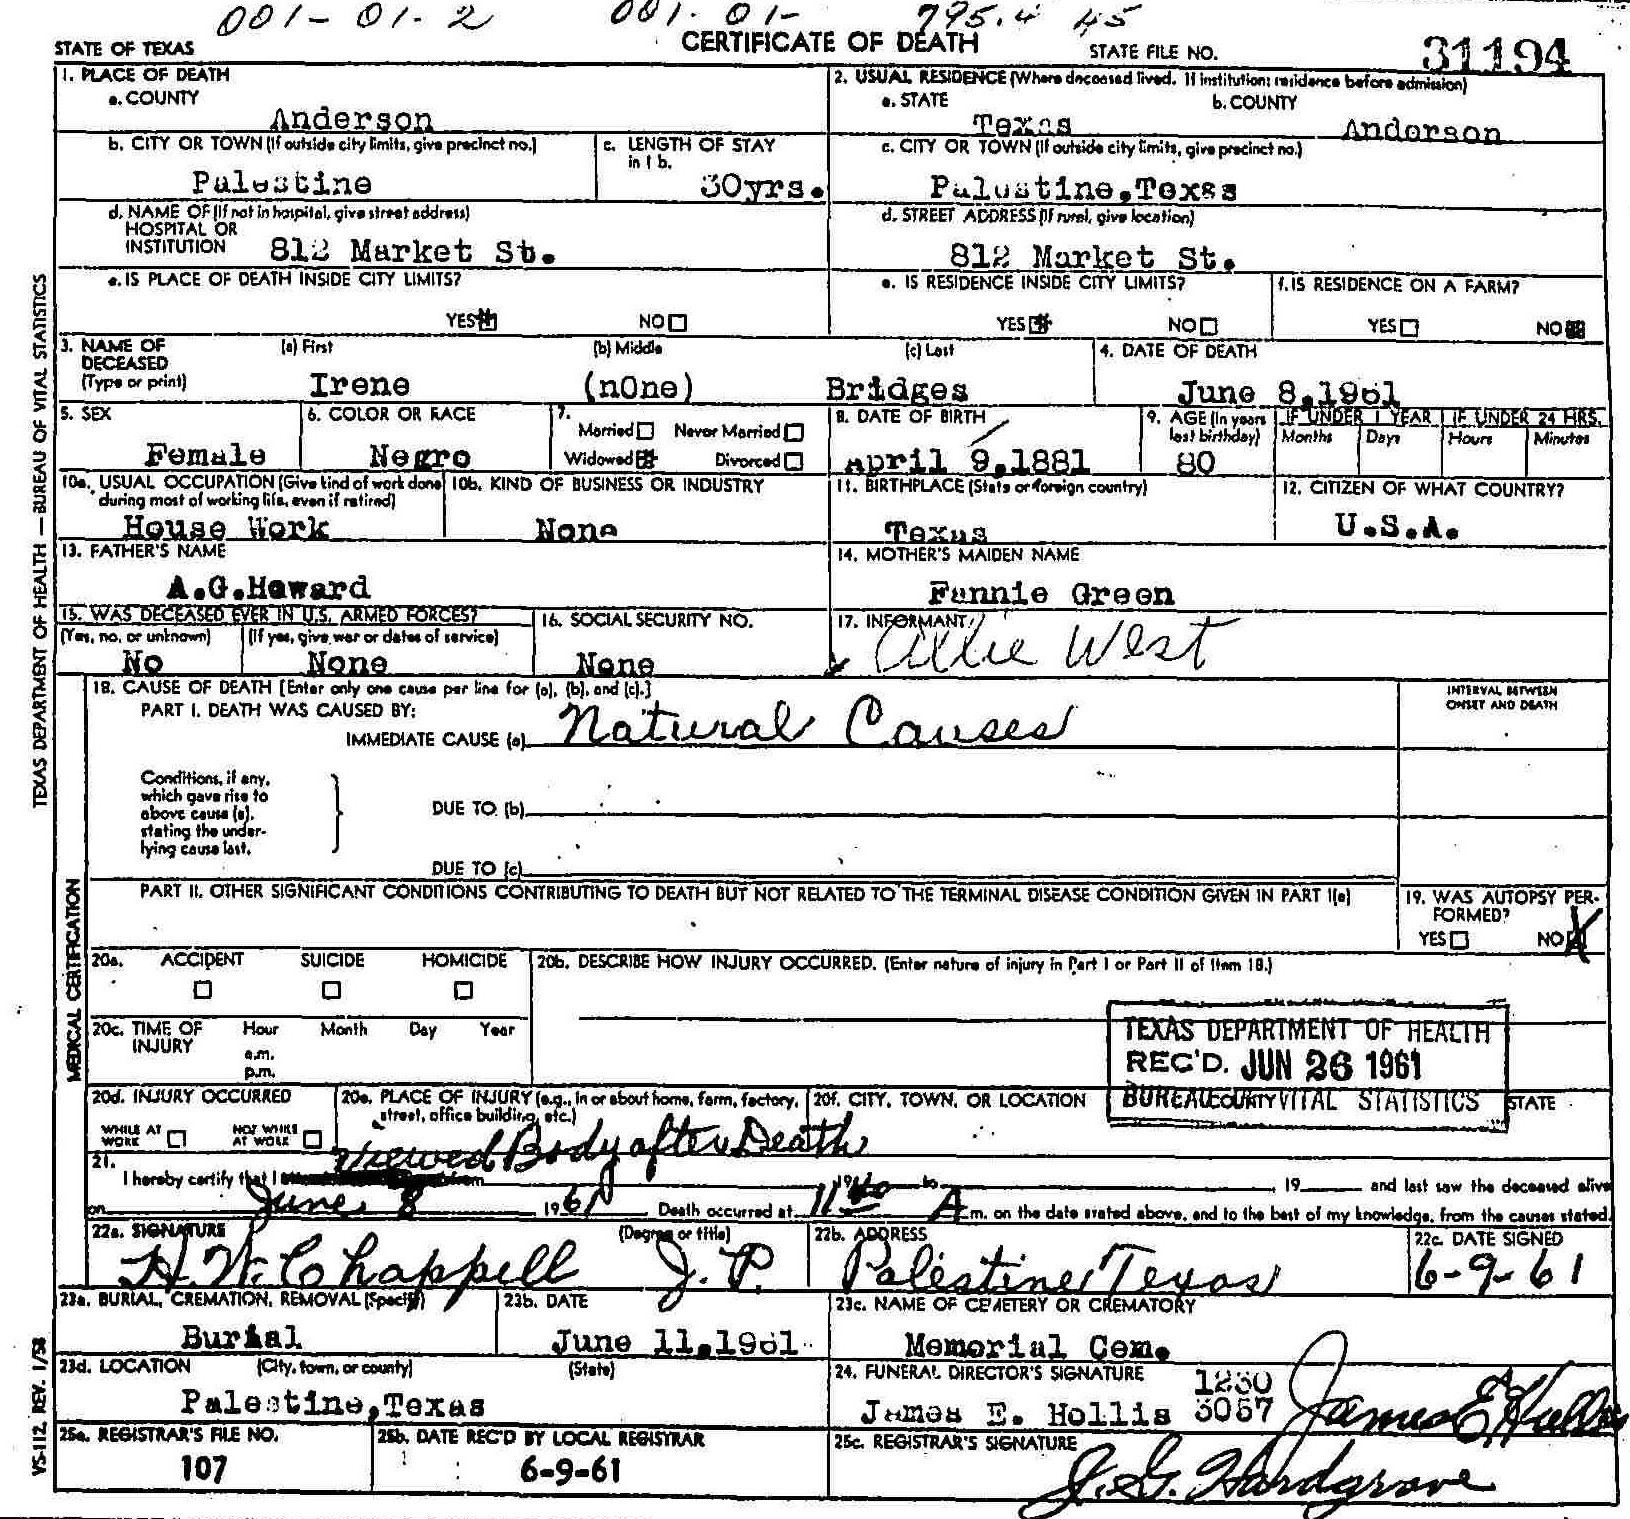 001-01-2 001-01- 795.4 45
STATE OF TEXAS CERTIFICATE OF DEATH STATE FILE NO. 31194
1. PLACE OF DEATH
a. COUNTY
Anderson
2. USUAL RESIDENCE (Where deceased lived. If institution: residence before admission)
a. STATE b. COUNTY
Texas Anderson
b. CITY OR TOWN (If outside city limits, give precinct no.)
Palestine
c. LENGTH OF STAY
in 1 b.
30yrs.
c. CITY OR TOWN (If outside city limits, give precinct no.)
Palestine, Texas
d. NAME OF (If not in hospital, give street address)
HOSPITAL OR
INSTITUTION 812 Market St.
d. STREET ADDRESS (If rural, give location)
812 Market St.
e. IS PLACE OF DEATH INSIDE CITY LIMITS?
YES NO
e. IS RESIDENCE INSIDE CITY LIMITS?
YES NO
f. IS RESIDENCE ON A FARM?
YES NO
3. NAME OF
DECEASED
(Type or print)
(a) First (b) Middle (c) Last
Irene (n0ne) Bridges
4. DATE OF DEATH
June 8, 1961
5. SEX
Female
6. COLOR OR RACE
Negro
7.
Married Never Married
Widowed Divorced
8. DATE OF BIRTH
April 9, 1881
9. AGE (In years
last birthday)
80
IF UNDER 1 YEAR IF UNDER 24 HRS.
Months Days Hours Minutes
10a. USUAL OCCUPATION (Give kind of work done
during most of working life, even if retired)
House Work
10b. KIND OF BUSINESS OR INDUSTRY
None
11. BIRTHPLACE (State or foreign country)
Texas
12. CITIZEN OF WHAT COUNTRY?
U.S.A.
13. FATHER'S NAME
A.G. Howard
14. MOTHER'S MAIDEN NAME
Fannie Green
15. WAS DECEASED EVER IN U.S. ARMED FORCES?
(Yes, no, or unknown) (If yes, give war or dates of service)
No None
16. SOCIAL SECURITY NO.
None
17. INFORMANT
Allie West
18. CAUSE OF DEATH [Enter only one cause per line for (a), (b), and (c).]
PART I. DEATH WAS CAUSED BY:
IMMEDIATE CAUSE (a) Natural Causes
INTERVAL BETWEEN
ONSET AND DEATH
Conditions, if any,
which gave rise to
above cause (a),
stating the under-
lying cause last.
DUE TO (b)
DUE TO (c)
PART II. OTHER SIGNIFICANT CONDITIONS CONTRIBUTING TO DEATH BUT NOT RELATED TO THE TERMINAL DISEASE CONDITION GIVEN IN PART I(a)
19. WAS AUTOPSY PER-
FORMED?
YES NO X
20a. ACCIDENT SUICIDE HOMICIDE
20b. DESCRIBE HOW INJURY OCCURRED. (Enter nature of injury in Part I or Part II of Item 18.)
20c. TIME OF
INJURY
Hour Month Day Year
a.m.
p.m.
TEXAS DEPARTMENT OF HEALTH
REC'D. JUN 26 1961
BUREAU VITAL STATISTICS
20d. INJURY OCCURRED
WHILE AT
WORK
NOT WHILE
AT WORK
20e. PLACE OF INJURY (e.g., in or about home, farm, factory,
street, office building, etc.)
20f. CITY, TOWN, OR LOCATION COUNTY STATE
Viewed Body after Death
21.
I hereby certify that I from 19 to , 19 and last saw the deceased alive
on June 8 1961 Death occurred at 11 A m. on the date stated above, and to the best of my knowledge, from the causes stated.
22a. SIGNATURE (Degree or title)
H. W. Chappell J. P.
22b. ADDRESS
Palestine Texas
22c. DATE SIGNED
6-9-61
23a. BURIAL, CREMATION, REMOVAL (Specify)
Burial
23b. DATE
June 11, 1961
23c. NAME OF CEMETERY OR CREMATORY
Memorial Cem.
23d. LOCATION (City, town, or county) (State)
Palestine, Texas
24. FUNERAL DIRECTOR'S SIGNATURE
1230
James E. Hollis 3057 James E. Hollis
25a. REGISTRAR'S FILE NO.
107
25b. DATE REC'D BY LOCAL REGISTRAR
6-9-61
25c. REGISTRAR'S SIGNATURE
J. G. Hardgrove
TEXAS DEPARTMENT OF HEALTH — BUREAU OF VITAL STATISTICS
MEDICAL CERTIFICATION
VS-112, REV. 1/58